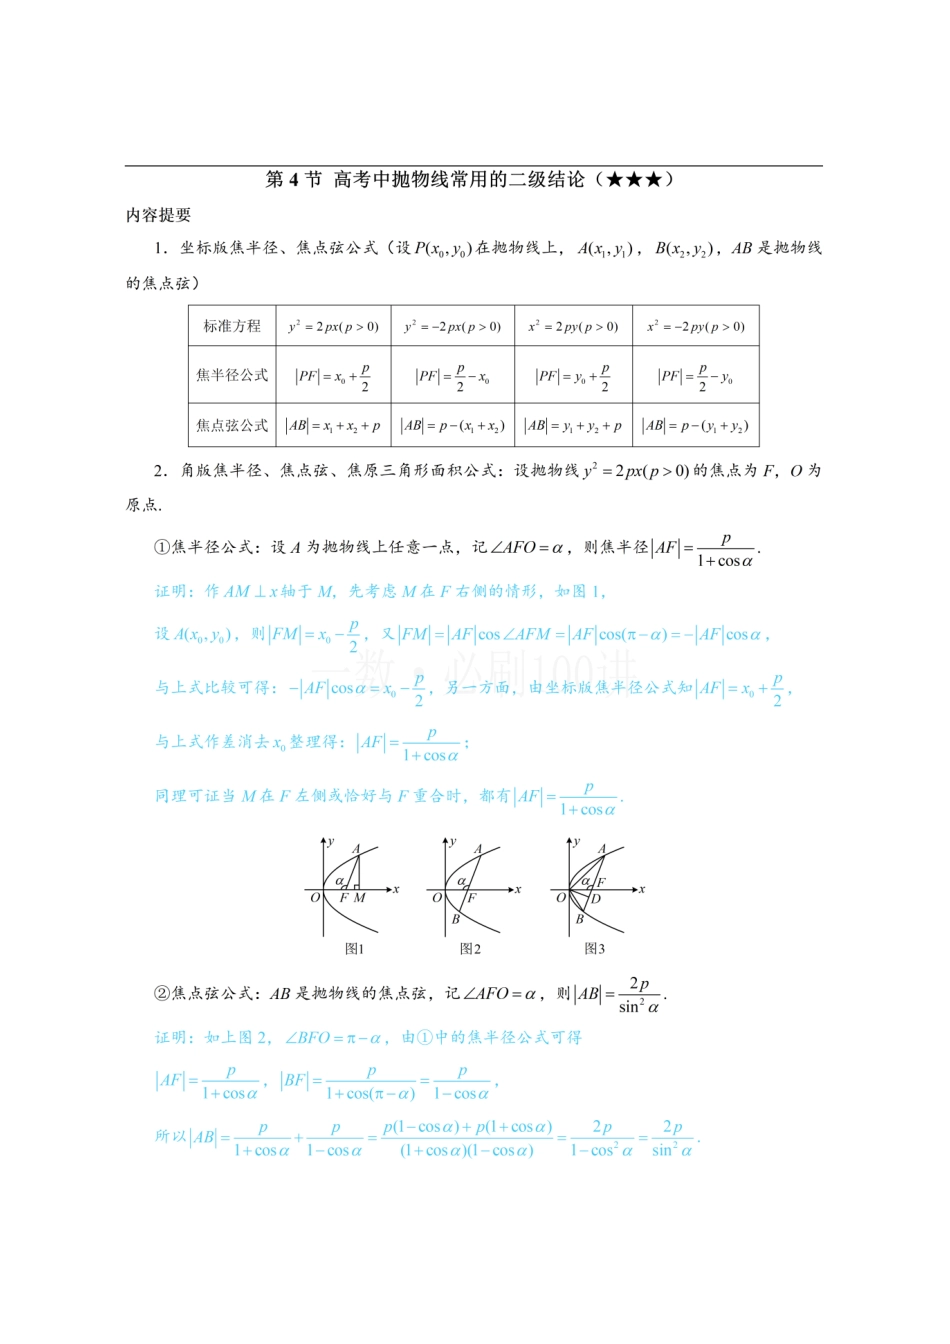 第 4 节 高考中抛物线常用的二级结论（★★★）
内容提要
1．坐标版焦半径、焦点弦公式（设 P(x₀, y₀) 在抛物线上，A(x₁, y₁)，B(x₂, y₂)，AB 是抛物线
的焦点弦）
标准方程 y² = 2px(p > 0) y² = −2px(p > 0) x² = 2py(p > 0) x² = −2py(p > 0)
焦半径公式 |PF| = x₀ + p/2 |PF| = p/2 − x₀ |PF| = y₀ + p/2 |PF| = p/2 − y₀
焦点弦公式 |AB| = x₁ + x₂ + p |AB| = p − (x₁ + x₂) |AB| = y₁ + y₂ + p |AB| = p − (y₁ + y₂)
2．角版焦半径、焦点弦、焦原三角形面积公式：设抛物线 y² = 2px(p > 0) 的焦点为 F，O 为
原点.
①焦半径公式：设 A 为抛物线上任意一点，记∠AFO = α，则焦半径 |AF| = p/(1 + cos α).
证明：作 AM ⊥ x 轴于 M，先考虑 M 在 F 右侧的情形，如图 1，
设 A(x₀, y₀)，则 |FM| = x₀ − p/2，又 |FM| = |AF| cos ∠AFM = |AF| cos(π − α) = −|AF| cos α，
一数·必刷100讲
与上式比较可得：−|AF| cos α = x₀ − p/2，另一方面，由坐标版焦半径公式知 |AF| = x₀ + p/2，
与上式作差消去 x₀ 整理得：|AF| = p/(1 + cos α)；
同理可证当 M 在 F 左侧或恰好与 F 重合时，都有 |AF| = p/(1 + cos α).
y A α O F M x
y A α O F x B
y A α F O D x B
图1 图2 图3
②焦点弦公式：AB 是抛物线的焦点弦，记∠AFO = α，则 |AB| = 2p/sin² α.
证明：如上图 2，∠BFO = π − α，由①中的焦半径公式可得
|AF| = p/(1 + cos α)，|BF| = p/(1 + cos(π − α)) = p/(1 − cos α)，
所以 |AB| = p/(1 + cos α) + p/(1 − cos α) = (p(1 − cos α) + p(1 + cos α))/((1 + cos α)(1 − cos α)) = 2p/(1 − cos² α) = 2p/sin² α.